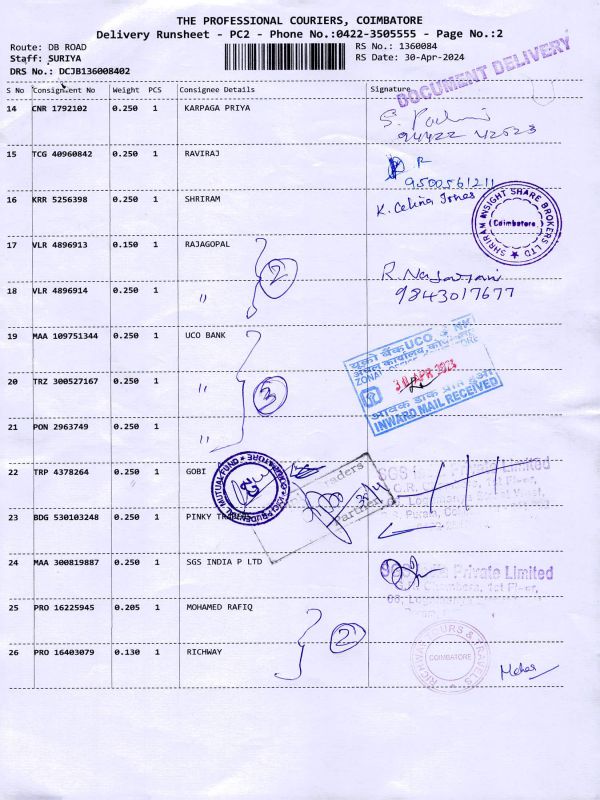 THE PROFESSIONAL COURIERS, COIMBATORE
Delivery Runsheet - PC2 - Phone No.:0422-3505555 - Page No.:2
Route: DB ROAD
RS No.: 1360084
Staff: SURIYA
RS Date: 30-Apr-2024
DRS No.: DCJB136008402
DOCUMENT DELIVERY
S No Consignment No Weight PCS Consignee Details Signature
14 CNR 1792102 0.250 1 KARPAGA PRIYA
94422 42523
15 TCG 40960842 0.250 1 RAVIRAJ
R
9500561211
16 KRR 5256398 0.250 1 SHRIRAM
K. Celina
SHRIRAM INSIGHT SHARE BROKERS LTD
Coimbatore
17 VLR 4896913 0.150 1 RAJAGOPAL
2
18 VLR 4896914 0.250 1 "
9843017677
19 MAA 109751344 0.250 1 UCO BANK
यूको बैंक UCO
ZONAL
30 APR 2024
INWARD MAIL RECEIVED
20 TRZ 300527167 0.250 1 "
3
21 PON 2963749 0.250 1 "
22 TRP 4378264 0.250 1 GOBI
ICICI PRUDENTIAL MUTUAL FUND
COIMBATORE
raders
Partner
SGS India Private Limited
1st Floor,
23 BDG 530103248 0.250 1 PINKY
24 MAA 300819887 0.250 1 SGS INDIA P LTD
Private Limited
1st Floor,
25 PRO 16225945 0.205 1 MOHAMED RAFIQ
2
26 PRO 16403079 0.130 1 RICHWAY
RICHWAY TOURS & TRAVELS
COIMBATORE